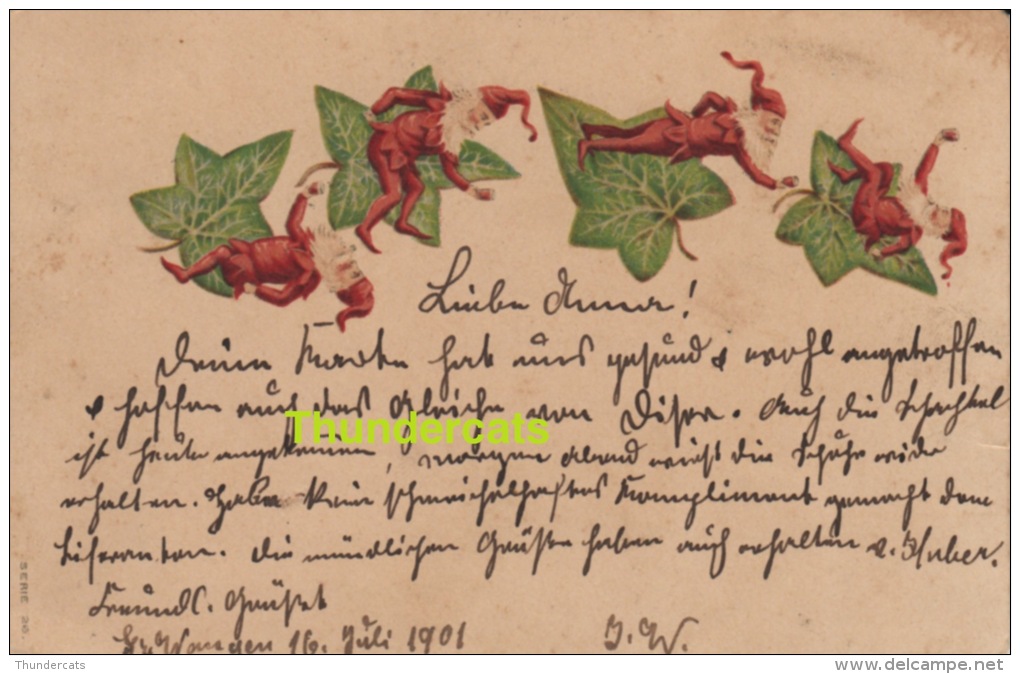 Liebe Anna!
Deine Karte hat uns gesund & wohl angetroffen
& hoffen auch das Gleiche von Dir. Auch die Schachtel
ist heute angekommen, morgen abend wirst die Schuhe wider
erhalten. Habe kein schmeichelhaftes Kompliment gemacht dem
Liferanten. Die mündlichen Grüsse haben auch erhalten v. Huber.
Freundl. Grüsst
Wangen 16. Juli 1901 J. W.
SERIE 26.
Thundercats
Thundercats
www.delcampe.net